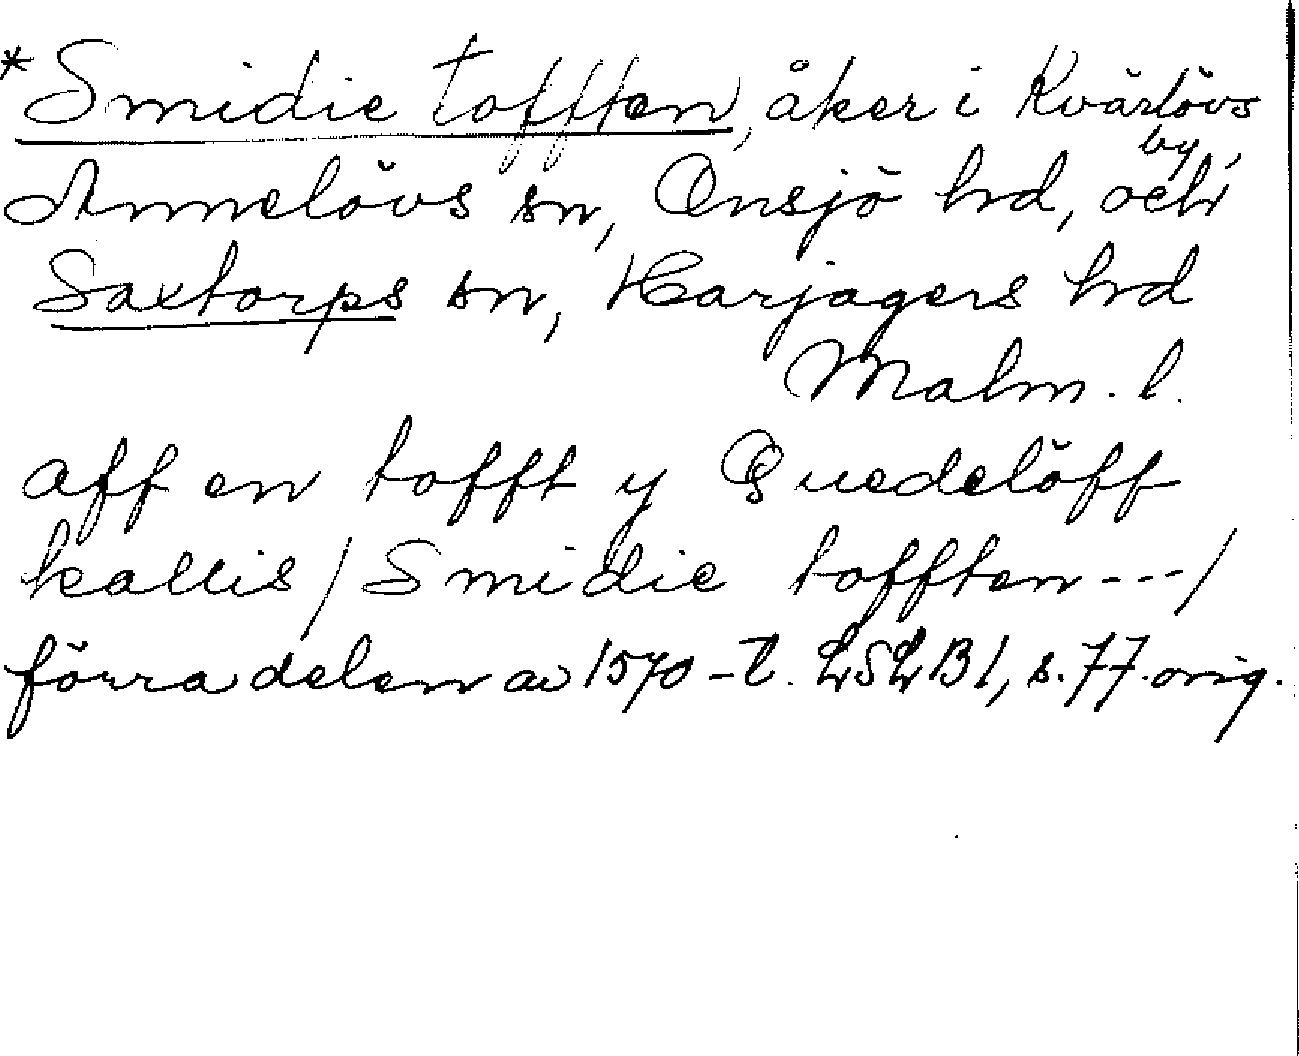 *Smidie tofften, åker i Kvärlövs
by,
Annelövs sn, Onsjö hd, och
Saxtorps sn, Harjagers hd
Malm. l.
aff en tofft y Quedelöff
kallis / Smidie tofften --- /
förra delen av 1570-t. LSLB 1, s. 77. orig.